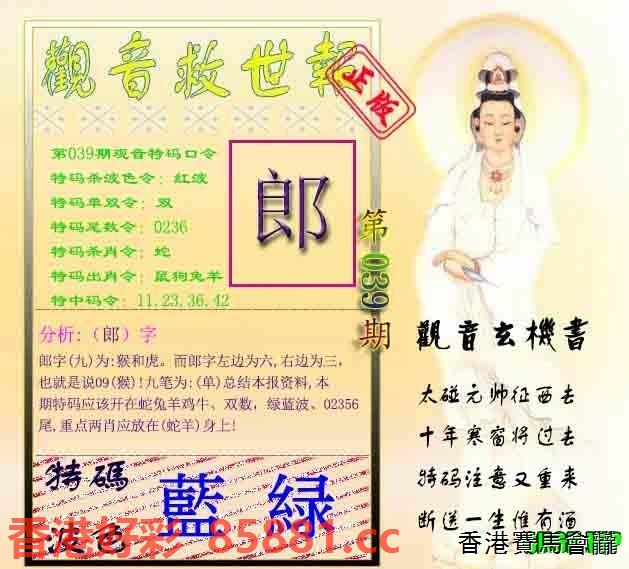 觀音救世報
正版
第039期观音特码口令
特码杀波色令：红波
特码单双令：双
特码尾数令：0236
特码杀肖令：蛇
特码出肖令：鼠狗兔羊
特中码令：11.23.36.42
郎
第039期
分析:（郎）字
郎字(九)为:猴和虎。而郎字左边为六,右边为三,
也就是说09(猴)!九笔为:(单)总结本报资料,本
期特码应该开在蛇兔羊鸡牛、双数，绿蓝波、02356
尾,重点两肖应放在(蛇羊)身上!
特碼
波色
藍 緑
觀音玄機書
太碰元帅征西去
十年寒窗将过去
特码注意又重来
断送一生惟有酒
香港好彩-85881.cc
香港賽馬會